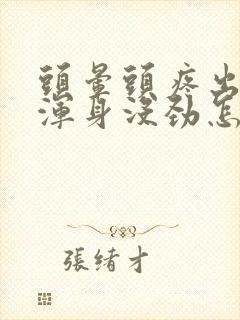 頭暈頭疼出
渾身沒勁怎
張緒才